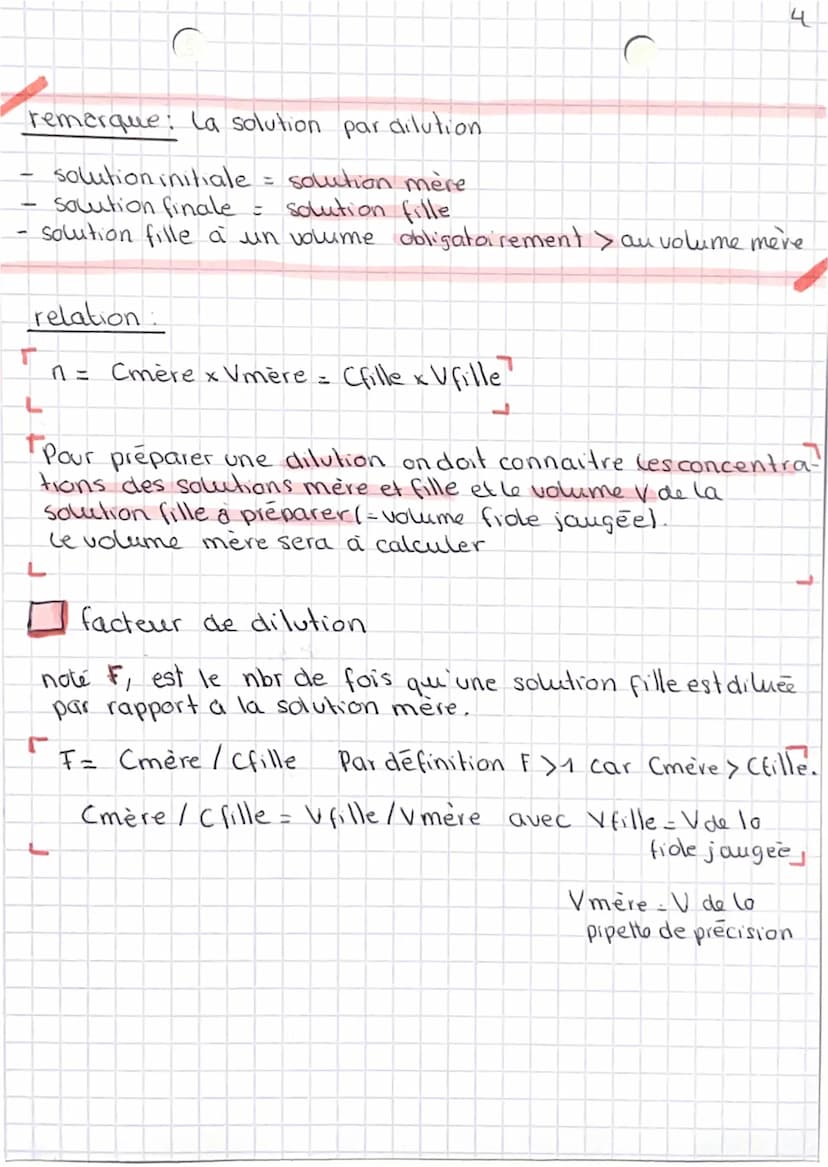 4
remarque: la solution par dilution
- solution initiale = solution mère
- solution finale = solution fille
- solution fille à un volume obligatoirement > au volume mère
relation :
n = Cmère x Vmère = Cfille x Vfille
Pour préparer une dilution on doit connaitre les concentra-
tions des solutions mère et fille et le volume V de la
solution fille à préparer (= volume fiole jaugée).
Le volume mère sera à calculer
facteur de dilution
noté F, est le nbr de fois qu'une solution fille est diluée
par rapport a la solution mère.
F = Cmère / Cfille Par définition F > 1 car Cmère > Cfille.
Cmère / Cfille = Vfille / Vmère avec Vfille = V de la
fiole jaugée
Vmère = V de la
pipette de précision